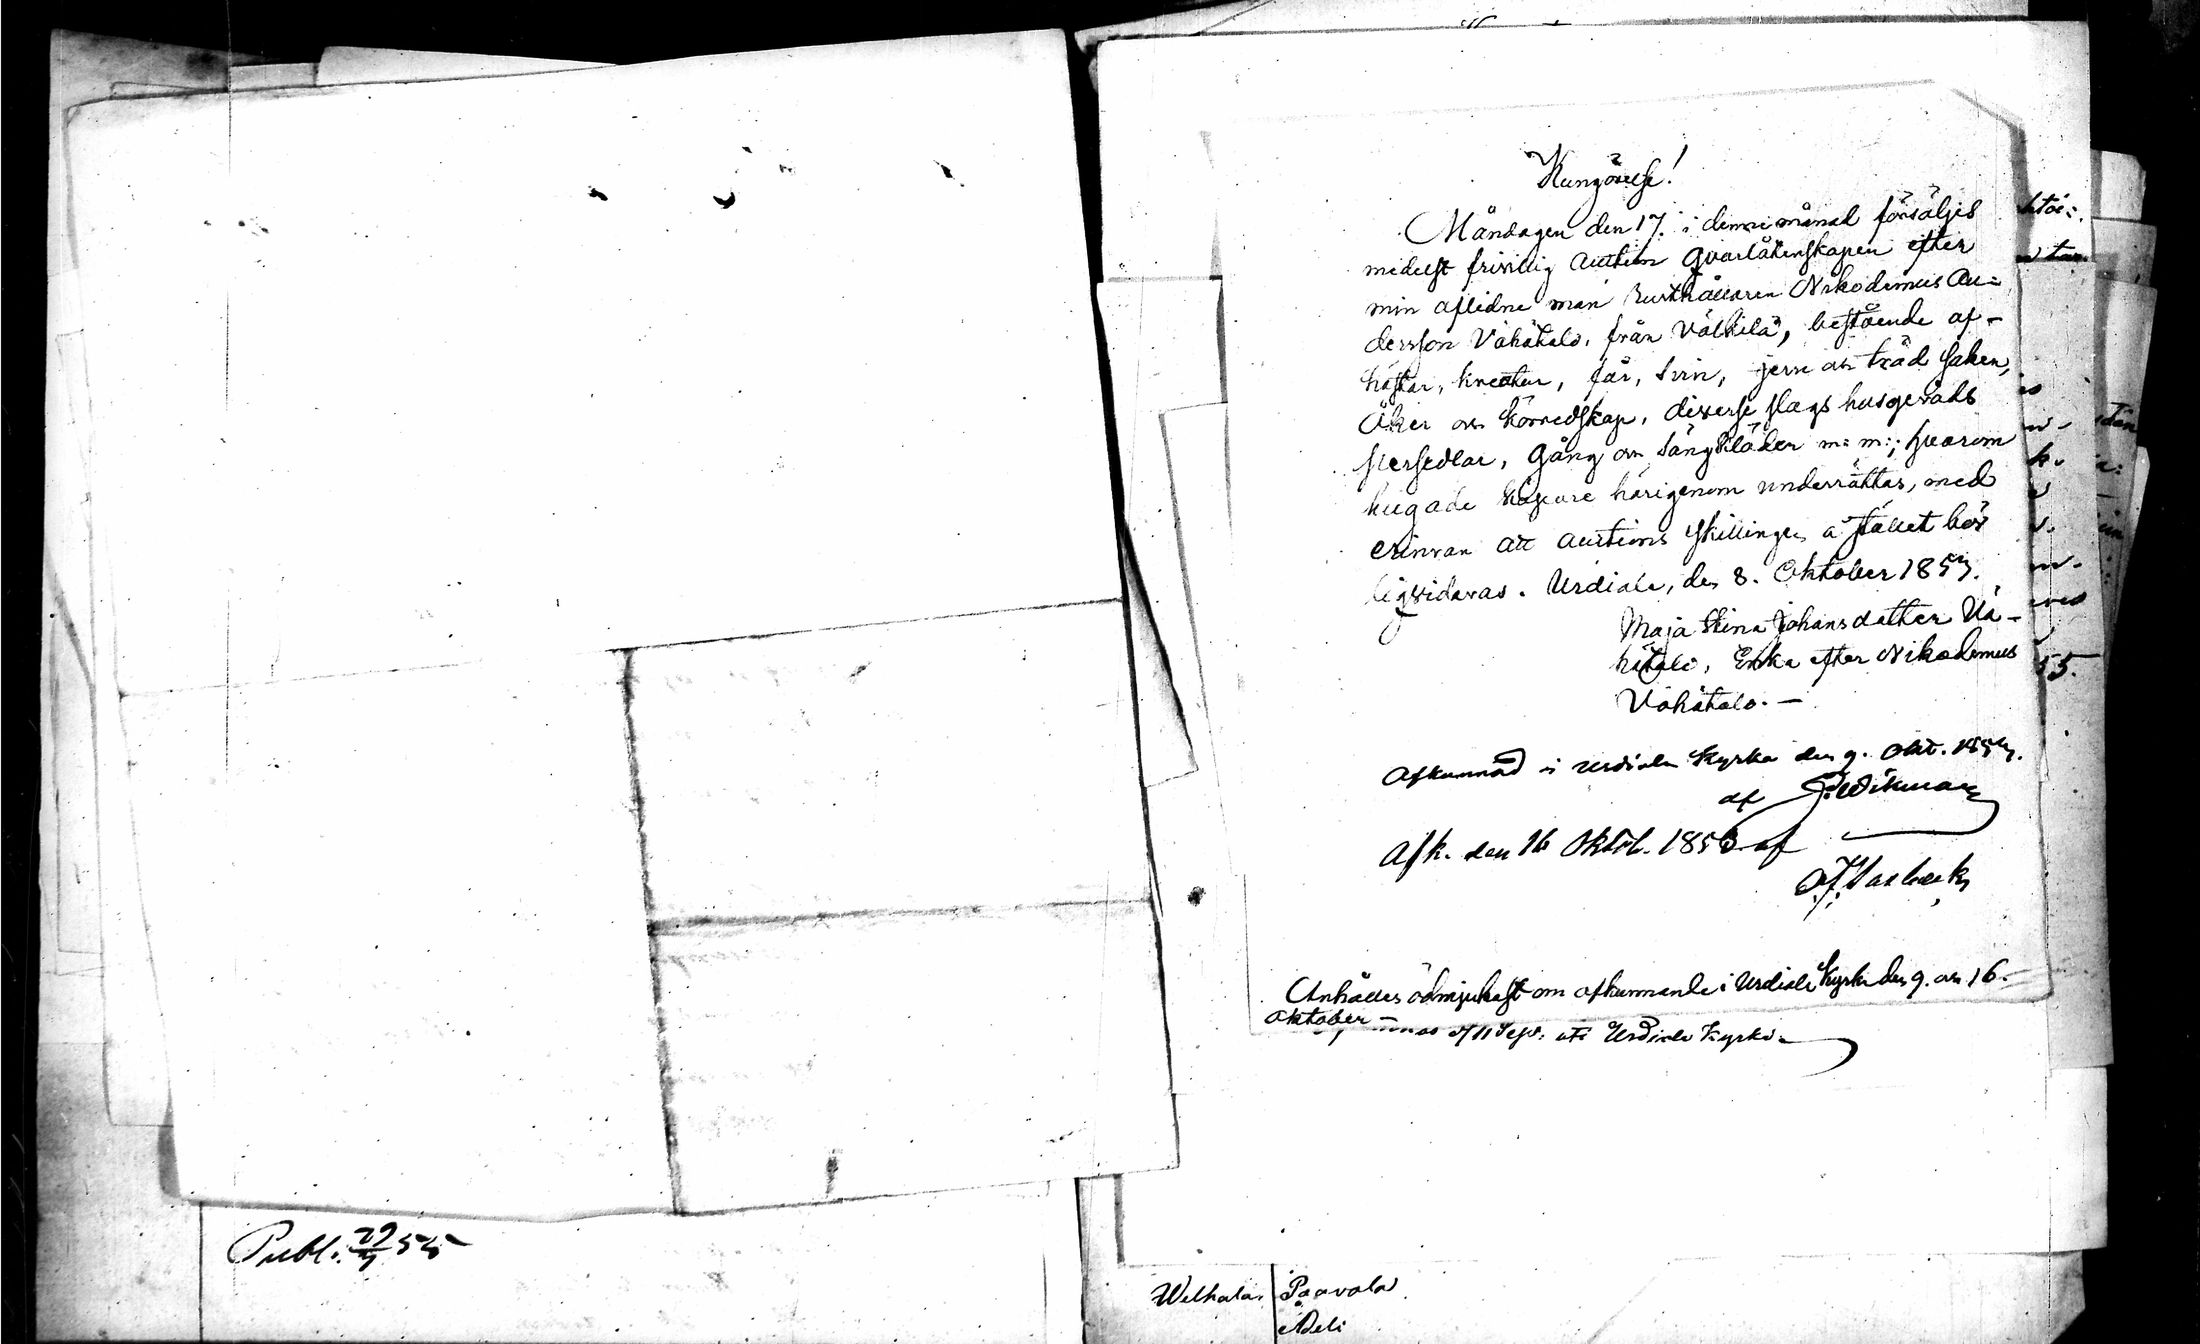 Kungörelse!
Måndagen den 17. i denne månad försäljes
medelst frivillig Auction Qvarlåtenskapen efter
min aflidne man Rusthållaren Nikodemus An=
dersson Vähätalo, från Välkilä, bestående af
hästar, kreatur, får, svin, jern och träd saker,
Åker och Körredskap, diverse slags husgeråds
persedlar, Gång och Sängkläder m: m:; hvarom
hugade köpare härigenom underrättas, med
erinran att auctions skillingen å stället bör
liqvideras. Urdiala, den 8. Oktober 1853.
Maja Stina Johansdotter Vä-
hätalo, Enka efter Nikodemus
Vähätalo. —
Afkunnad i Urdiala Kyrka den 9. Okt. 1853.
af Wikman
Afk. den 16 Oktob. 1853 af
Anhålles ödmjukast om afkunnande i Urdiala Kyrka den 9. och 16.
Oktober
Urdiala Kyrka.
Publ. 29/7 55
55.
Paavola